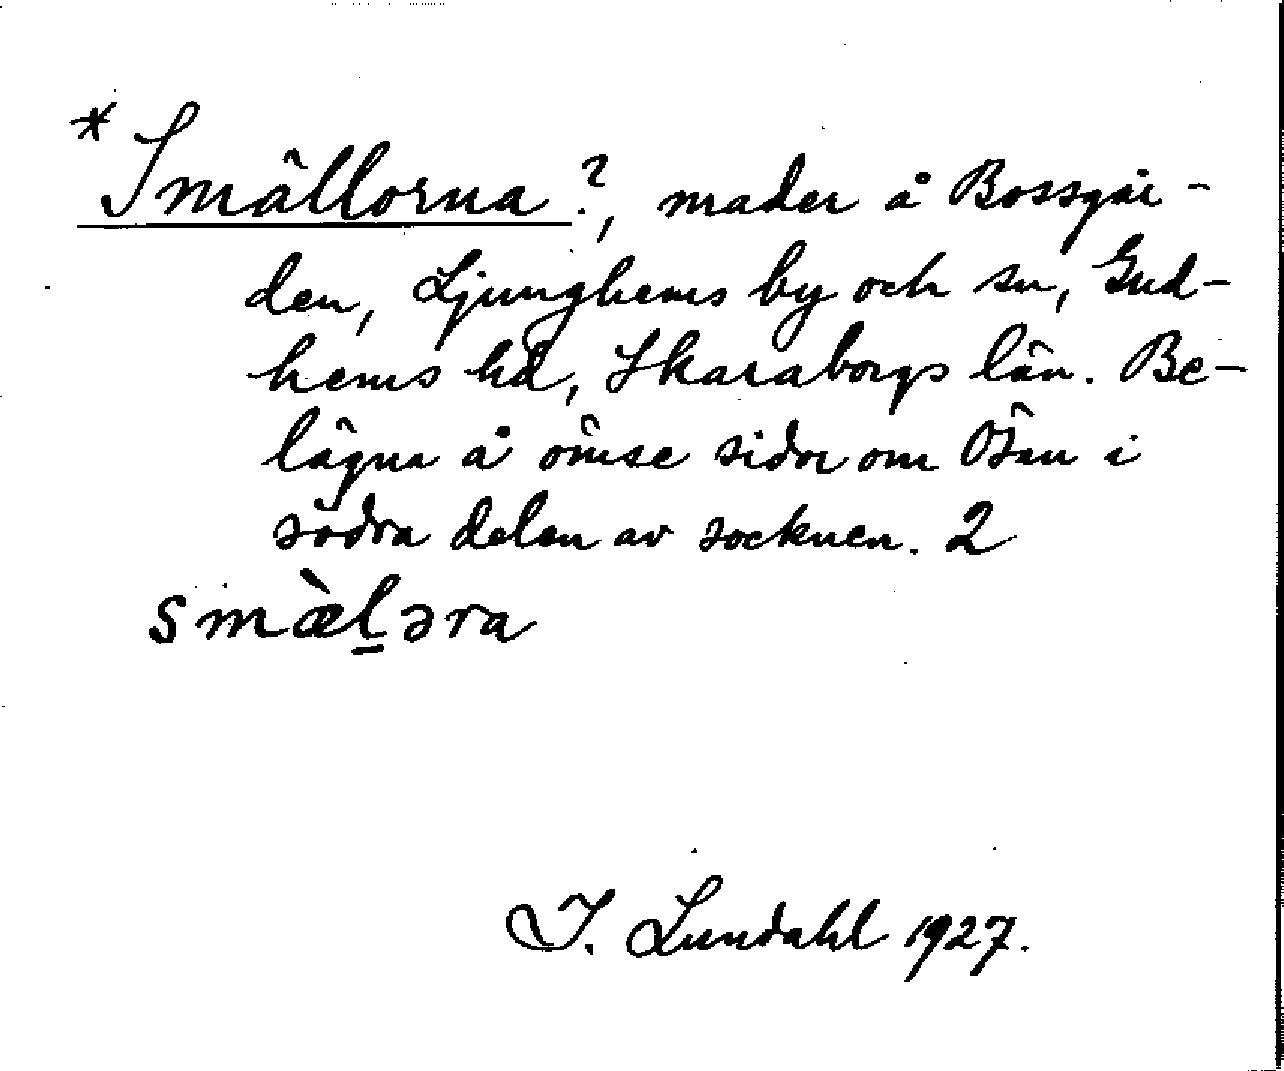 * Smällorna?, mader å Bossgår-
den, Ljunghems by och sn, Gud-
hems hd, Skaraborgs län. Be-
lägna å ömse sidor om Ösan i
södra delen av socknen. 2
smæ̀l̠əra
I. Lundahl 1927.